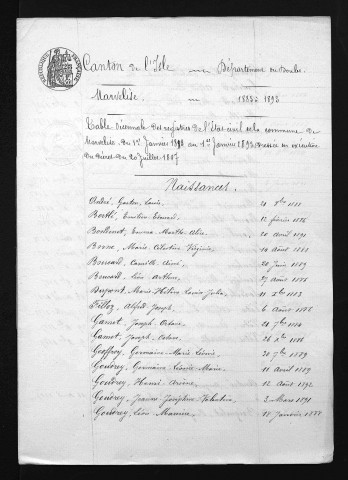 Canton de l'Isle Département du Doubs
Marvelise. 1883 à 1893
Table décennale des registres de l'état civil de la commune de
Marvelise du 1er Janvier 1883 au 1er Janvier 1893 dressée en exécution
du décret du 20 Juillet 1807
Naissances.
André, Gaston, Louis.
Berthé, Emilien Edmond. 12 février 1886
Bouhenot, Emma, Marthe, Alice. 20 avril 1891
Bosne, Marie, Célestine Virginie. 14 Août 1888
Bruead, Camille Aimé. 20 Juin 1889
Bruead, Léon Arthur. 27 Août 1886
Dupont, Marie Hélène Louise Julie. 11 Xbre 1883
Filloz, Alfred Joseph. 6 Août 1885
Gamet, Joseph Octave 28 7bre 1884
Gamet, Joseph, Octave. 26 Xbre 1886
Geoffroy, Germaine Marie Léonie. 30 7bre 1889
Goudrey, Germaine Léonie Marie. 11 Avril 1889
Goudrey, Henri Arsène. 12 Août 1892
Goudrey, Jeanne Joséphine Valentine. 2 Mars 1891
Goudrey, Léon Maurice. 18 Janvier 1888